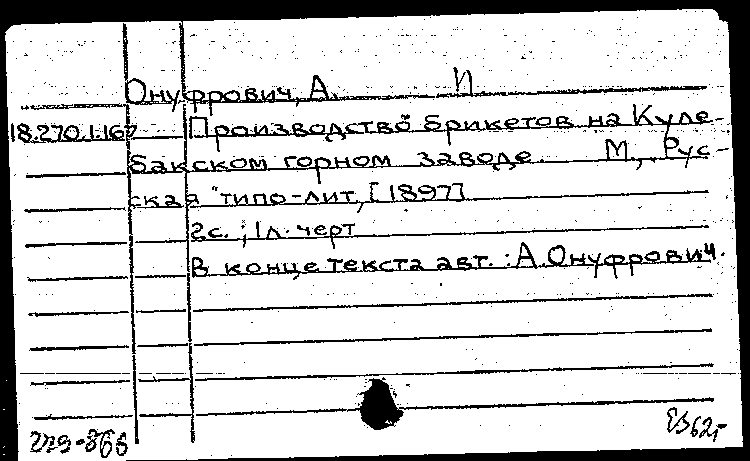 Онуфрович, А. И
18.270.1.167 Производство брикетов на Куле-
бакском горном заводе. М., Рус-
ская типо-лит, [1897]
2с. ; 1л. черт
В конце текста авт. : А. Онуфрович.
229-866